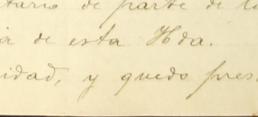 tario de parte de l
a de esta Hda.
idad, y quedo pres